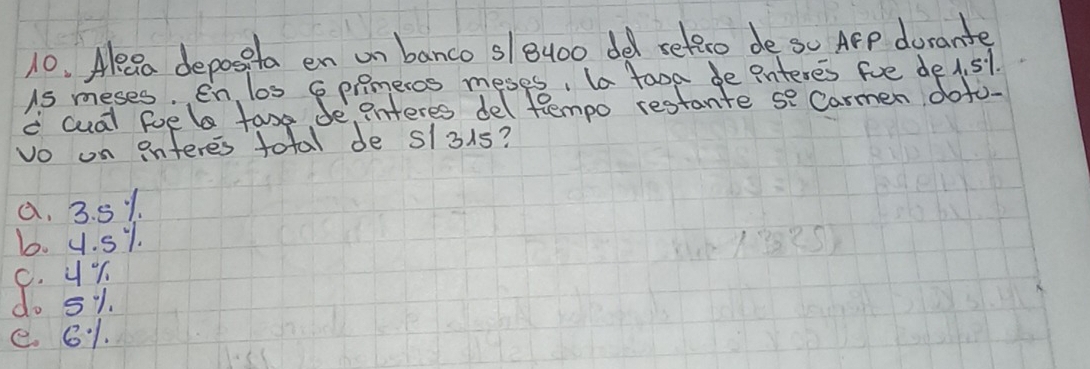 10. Alicia deposita en un banco s/8400 del retiro de su AFP durante
15 meses. En los 6 primeros meses, la tasa de interés fue de 1,5%.
¿ cuál fue la tasa de interes del tiempo restante si Carmen obtu-
vo un interés total de S/315?
a. 3.5%.
b. 4.5%.
c. 4%.
d. 5%.
e. 6%.